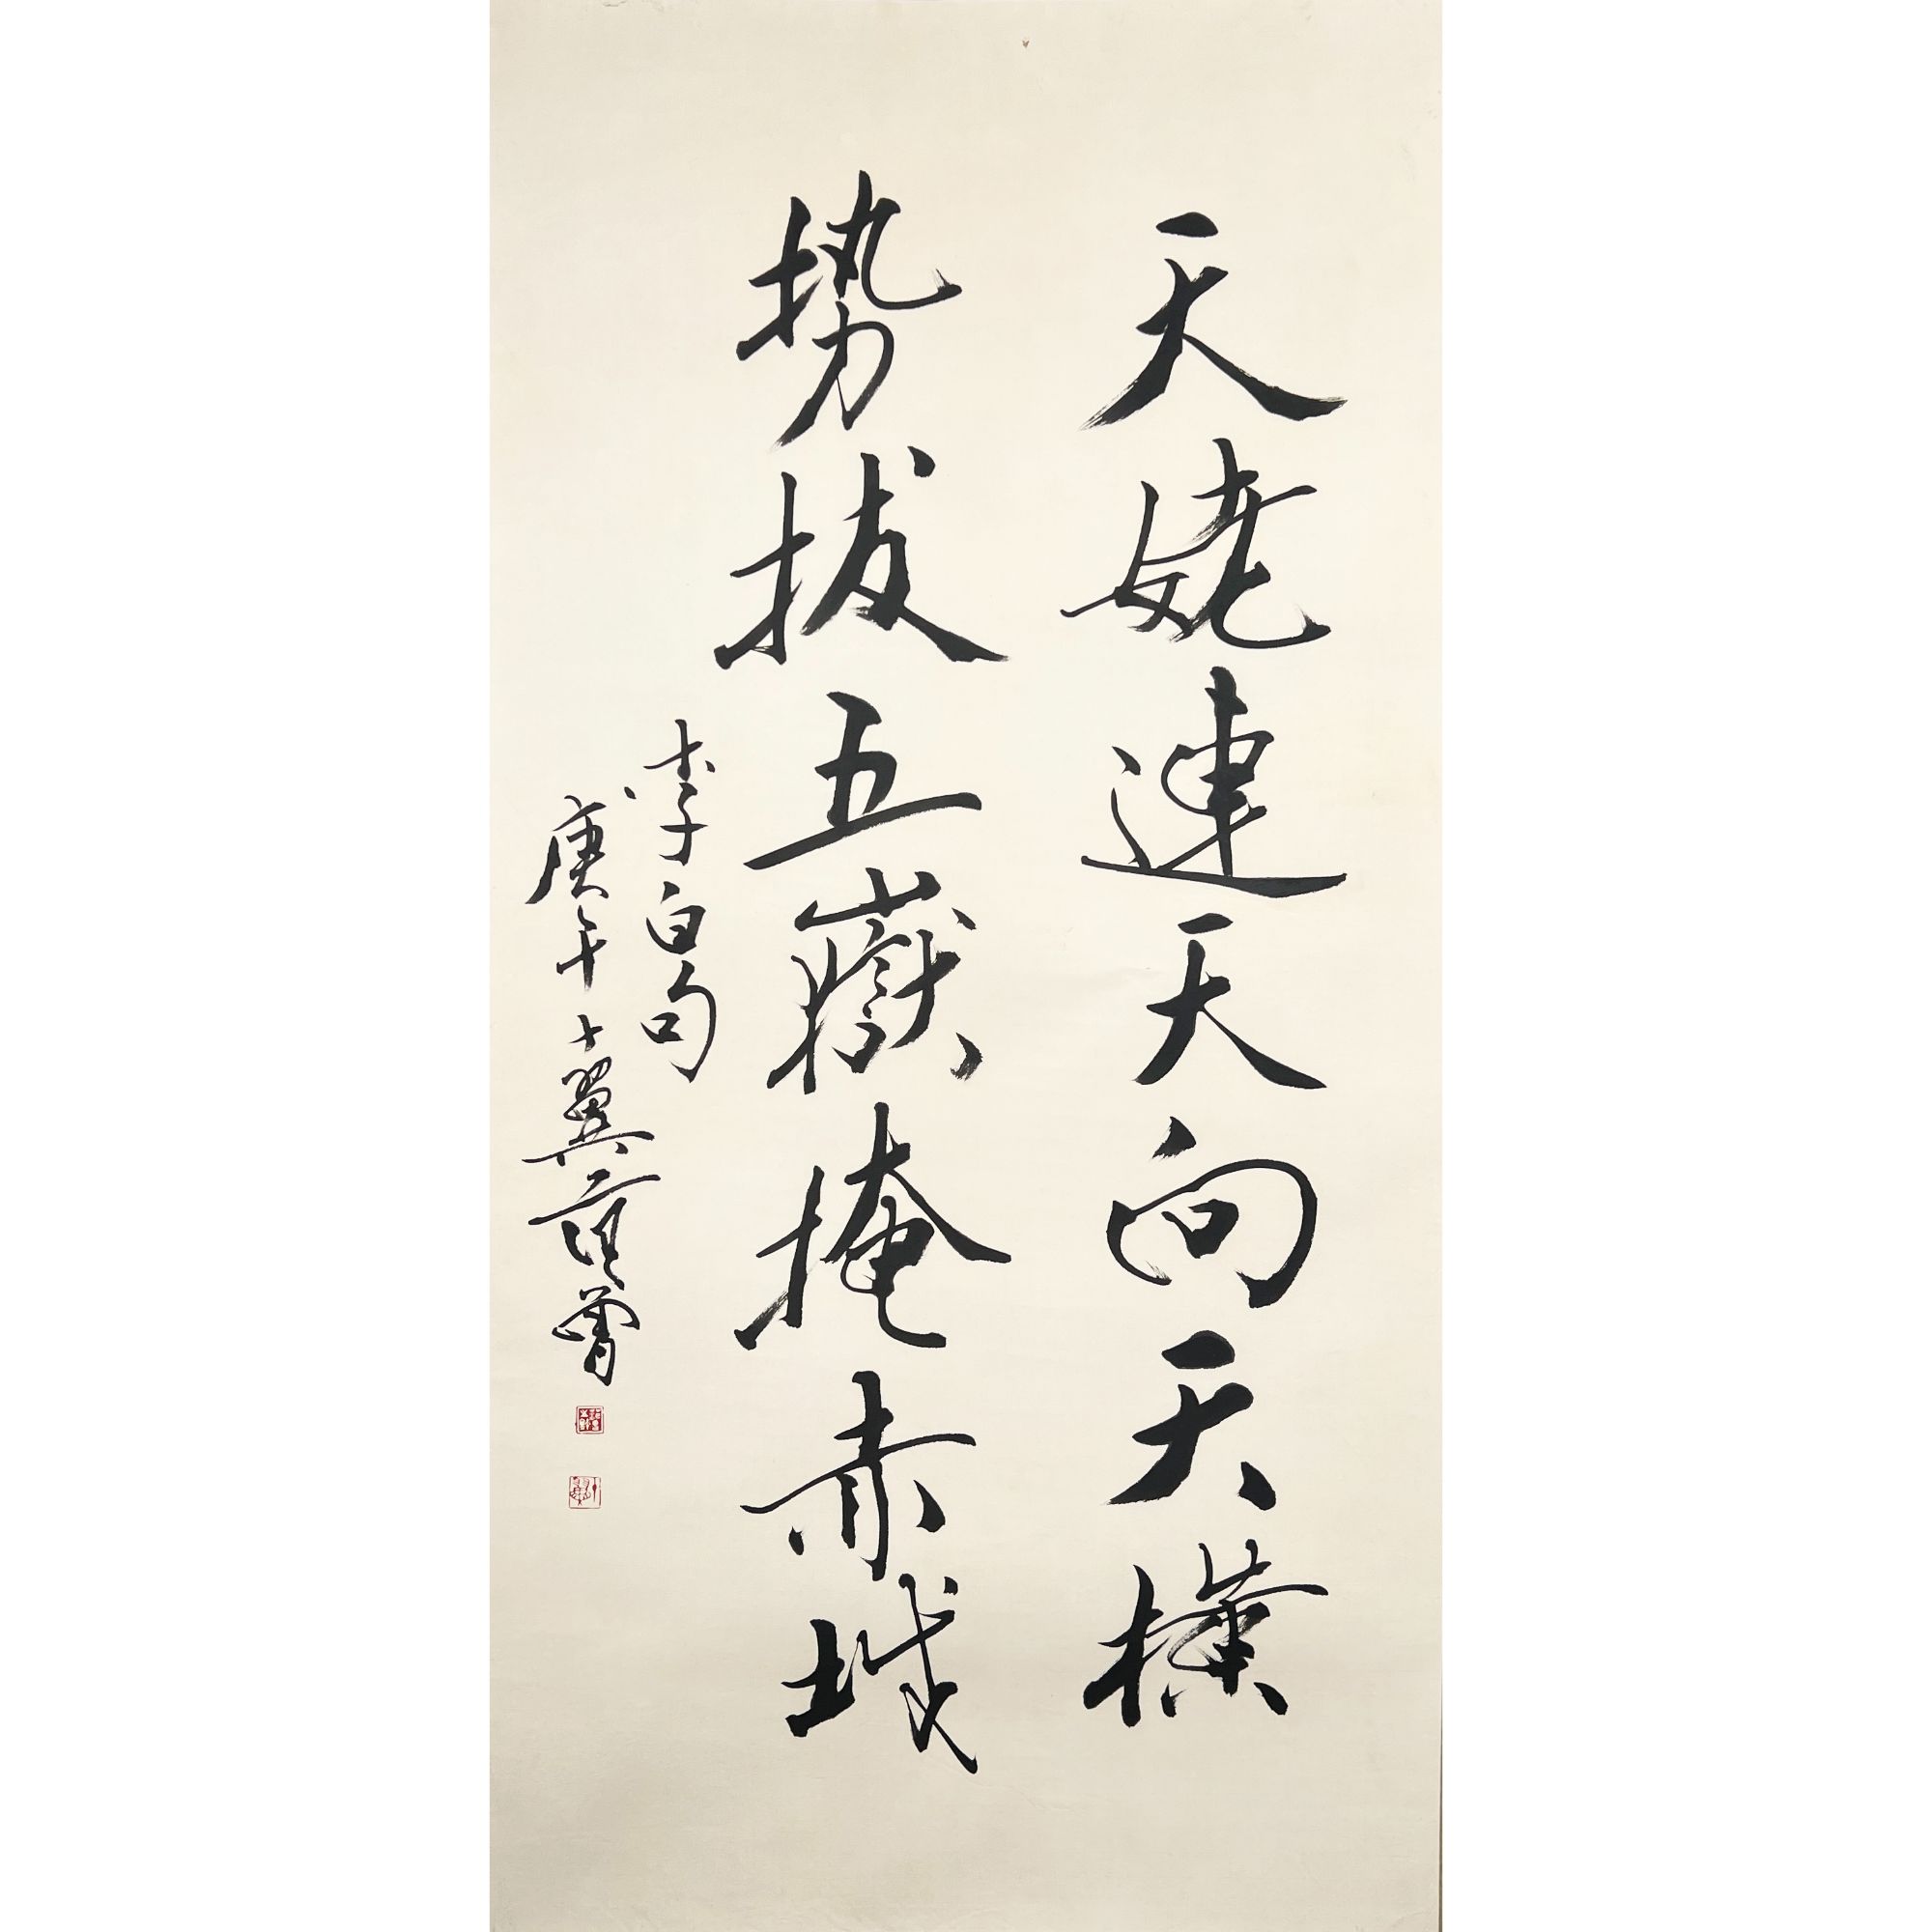 天姥連天向天橫
势拔五嶽掩赤城
李白句
庚午十翼范曾